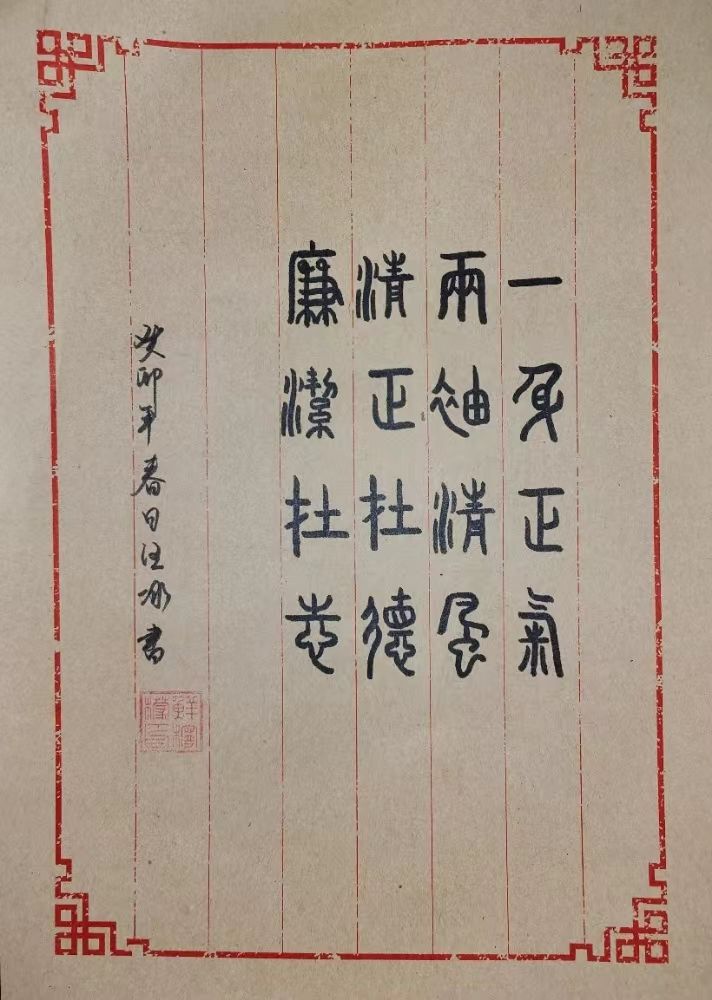 一身正氣
兩袖清風
清正在德
廉潔在志
癸卯年春日汪冰書